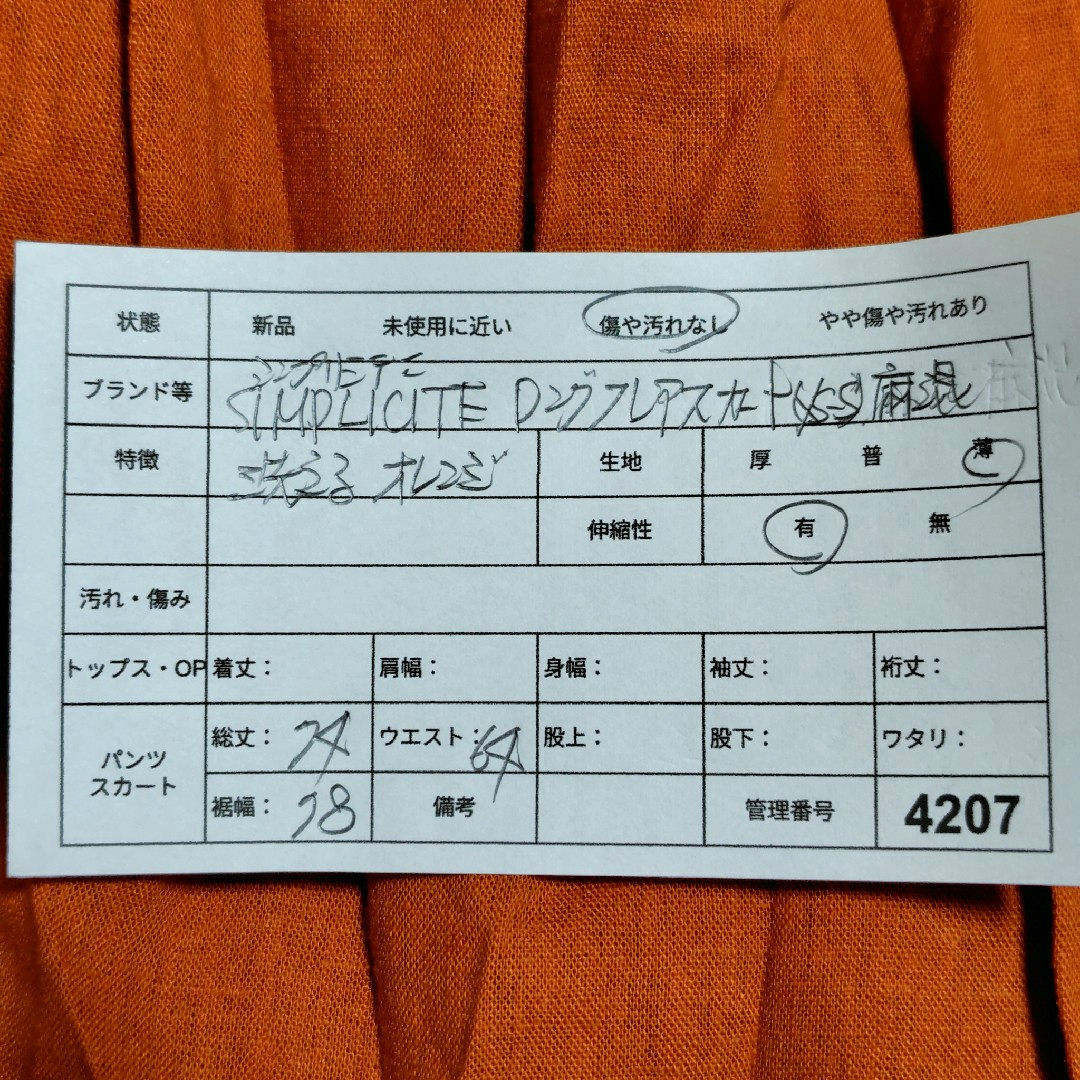 状態 新品 未使用に近い 傷や汚れなし やや傷や汚れあり
シンプリシテ
ブランド等 SIMPLICITE ロングフレアスカート 麻混
特徴 洗える オレンジ 生地 厚 普 薄
伸縮性 有 無
汚れ・傷み
トップス・OP 着丈: 肩幅: 身幅: 袖丈: 裄丈:
パンツ スカート 総丈: 74 ウエスト: 64 股上: 股下: ワタリ:
裾幅: 78 備考 管理番号 4207